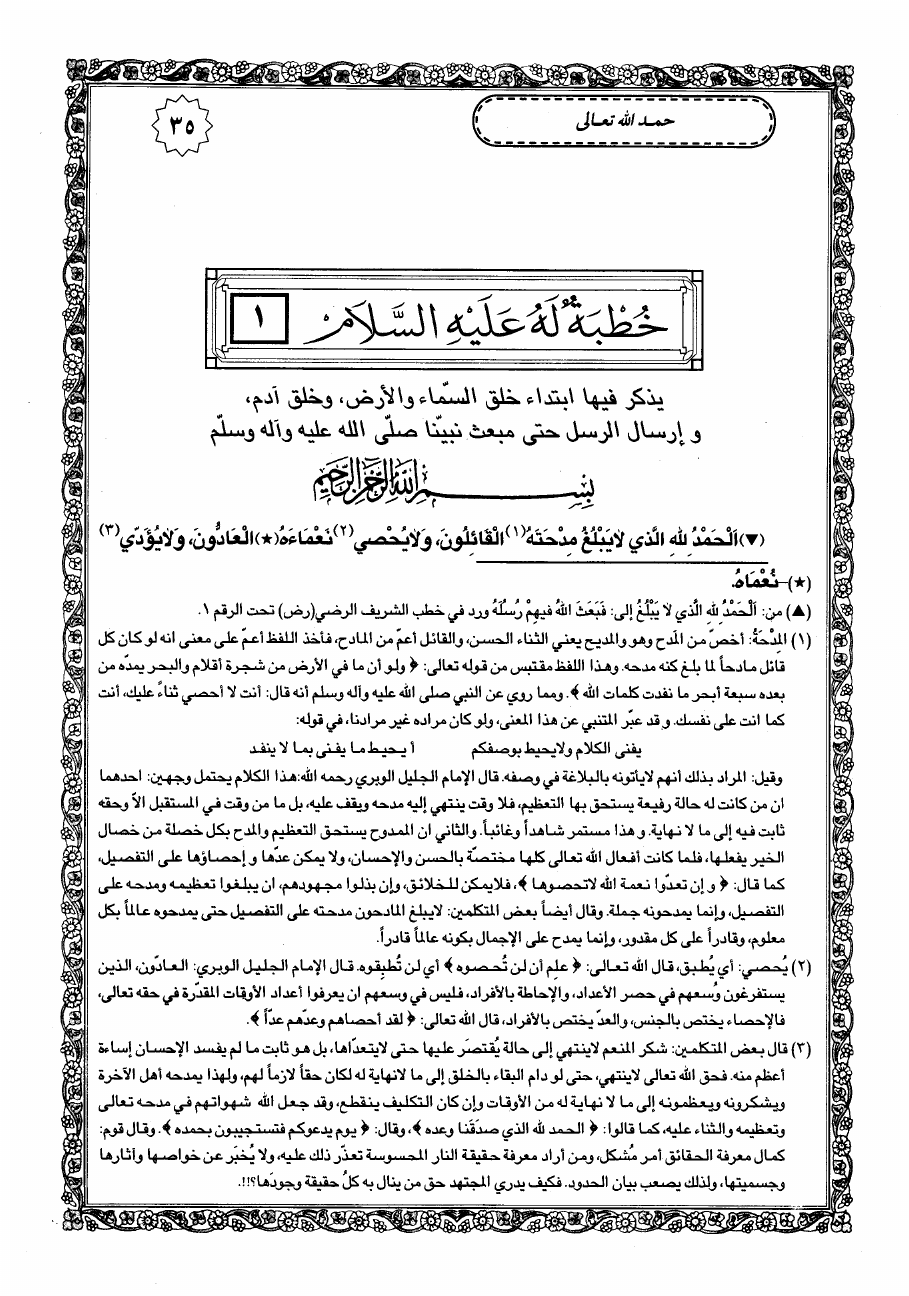 حمد الله تعالى
٣٥
خُطْبَةٌ لَهُ عَلَيْهِ السَّلَام
١
يذكر فيها ابتداء خلق السّماء والأرض، وخلق آدم،
و إرسال الرسل حتى مبعث نبيّنا صلّى الله عليه وآله وسلّم
بِسْمِ اللهِ الرَّحْمَنِ الرَّحِيمِ
(▼) اَلْحَمْدُ للهِ الَّذي لاَيَبْلُغُ مِدْحَتَهُ(١) الْقَائِلُونَ، وَلاَيُحْصي(٢) نَعْمَاءَهُ(★) الْعَادُّونَ، وَلاَيُؤَدّي(٣)
(★)–نُعْمَاهُ.
(▲) من: اَلْحَمْدُ للهِ الَّذي لاَ يَبْلُغُ إلى: فَبَعَثَ اللهُ فيهِمْ رُسُلَهُ ورد في خطب الشريف الرضي(رض) تحت الرقم ١.
(١) المِدْحَةُ: أخصّ من المدح وهو والمديح يعني الثناء الحسن، والقائل أعمّ من المادح، فأخذ اللفظ أعمّ على معنى انه لو كان كل
قائل مادحاً لما بلغ كنه مدحه. وهذا اللفظ مقتبس من قوله تعالى: ﴿ ولو أن ما في الأرض من شجرة أقلام والبحر يمدّه من
بعده سبعة أبحر ما نفدت كلمات الله ﴾. ومما روي عن النبي صلى الله عليه وآله وسلم أنه قال: أنت لا أحصي ثناءً عليك، أنت
كما انت على نفسك. و قد عبّر المتنبي عن هذا المعنى، ولو كان مراده غير مرادنا، في قوله:
يفنى الكلام ولايحيط بوصفكم أ يحيط ما يفنى بما لا ينفد
وقيل: المراد بذلك أنهم لايأتونه بالبلاغة في وصفه. قال الإمام الجليل الوبري رحمه الله: هذا الكلام يحتمل وجهين: احدهما
ان من كانت له حالة رفيعة يستحق بها التعظيم، فلا وقت ينتهي إليه مدحه ويقف عليه، بل ما من وقت في المستقبل الاّ وحقه
ثابت فيه إلى ما لا نهاية. و هذا مستمر شاهداً وغائباً. والثاني ان الممدوح يستحق التعظيم والمدح بكل خصلة من خصال
الخير يفعلها، فلما كانت أفعال الله تعالى كلها مختصّة بالحسن والإحسان، ولا يمكن عدّها و إحصاؤها على التفصيل،
كما قال: ﴿ و إن تعدّوا نعمة الله لاتحصوها ﴾، فلايمكن للخلائق، وإن بذلوا مجهودهم، ان يبلغوا تعظيمه ومدحه على
التفصيل، وإنما يمدحونه جملة. وقال أيضاً بعض المتكلمين: لايبلغ المادحون مدحته على التفصيل حتى يمدحوه عالماً بكل
معلوم، وقادراً على كل مقدور، وإنما يمدح على الإجمال بكونه عالماً قادراً.
(٢) يُحصي: أي يُطيق، قال الله تعالى: ﴿ علم أن لن تُحصوه ﴾ أي لن تُطيقوه. قال الإمام الجليل الوبري: العادّون، الذين
يستفرغون وُسعهم في حصر الأعداد، والإحاطة بالأفراد، فليس في وسعهم ان يعرفوا أعداد الأوقات المقدّرة في حقه تعالى،
فالإحصاء يختص بالجنس، والعدّ يختص بالأفراد، قال الله تعالى: ﴿ لقد أحصاهم وعدّهم عدّاً ﴾.
(٣) قال بعض المتكلمين: شكر المنعم لاينتهي إلى حالة يُقتصَر عليها حتى لايتعدّاها، بل هو ثابت ما لم يفسد الإحسان إساءة
أعظم منه. فحق الله تعالى لاينتهي، حتى لو دام البقاء بالخلق إلى ما لانهاية له لكان حقاً لازماً لهم، ولهذا يمدحه أهل الآخرة
ويشكرونه ويعظمونه إلى ما لا نهاية له من الأوقات وإن كان التكليف ينقطع، وقد جعل الله شهواتهم في مدحه تعالى
وتعظيمه والثناء عليه، كما قالوا: ﴿ الحمد لله الذي صدَقَنا وعده ﴾، وقال: ﴿ يوم يدعوكم فتستجيبون بحمده ﴾. وقال قوم:
كمال معرفة الحقائق أمر مُشكل، ومن أراد معرفة حقيقة النار المحسوسة تعذّر ذلك عليه، ولا يُخبَر عن خواصها وأثارها
وجسميتها، ولذلك يصعب بيان الحدود. فكيف يدري المجتهد حق من ينال به كلُ حقيقة وجودَها؟!!.